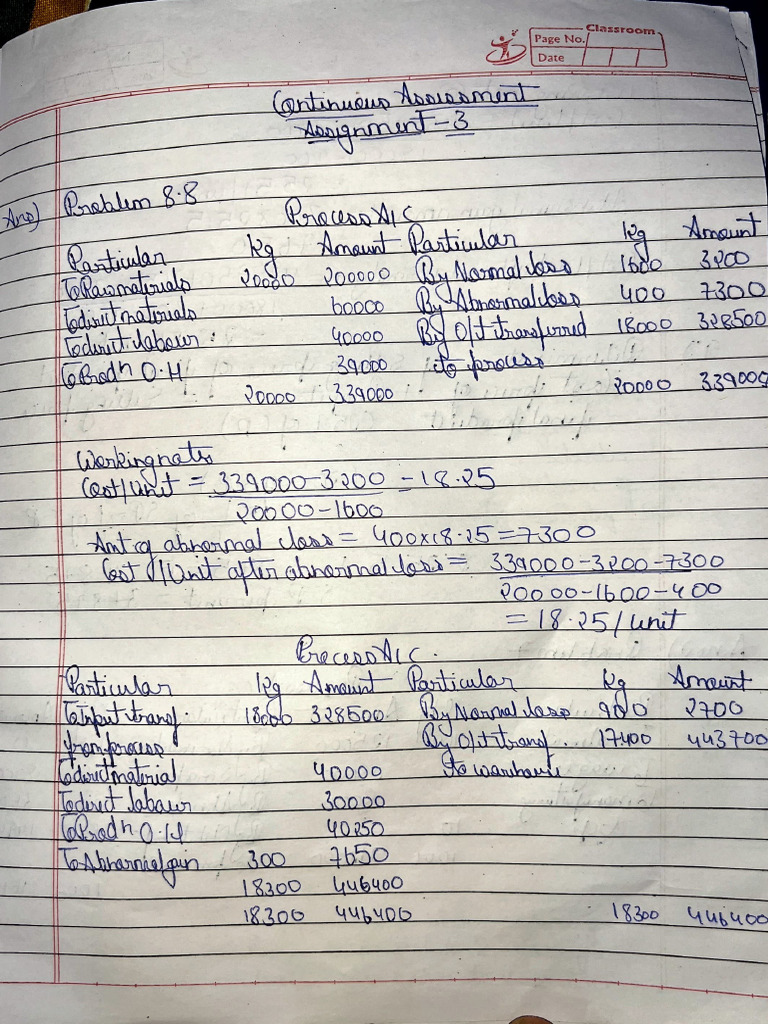 Classroom
Page No.
Date
Continuous Assessment
Assignment-3
Ans) Problem 8.8
Process A/C
Particular Kg Amount Particular Kg Amount
To Raw materials 20000 200000 By Normal loss 1600 3200
To direct materials 60000 By Abnormal loss 400 7300
To direct labour 40000 By O/t transferred 18000 328500
To Prodn O.H 39000 to process
20000 339000 20000 339000
Working notes
Cost/Unit = 339000-3200 = 18.25
20000-1600
Amt of abnormal loss = 400x18.25=7300
Cost /Unit after abnormal loss = 339000-3200-7300
20000-1600-400
= 18.25/unit
Process A/C.
Particular Kg Amount Particular Kg Amount
To Input transf. 18000 328500 By Normal loss 900 2700
from process By O/t transf. 17400 443700
To direct material 40000 to warehouse
To direct labour 30000
To Prodn O.H 40250
To Abnormal gain 300 7650
18300 446400
18300 446400 18300 446400